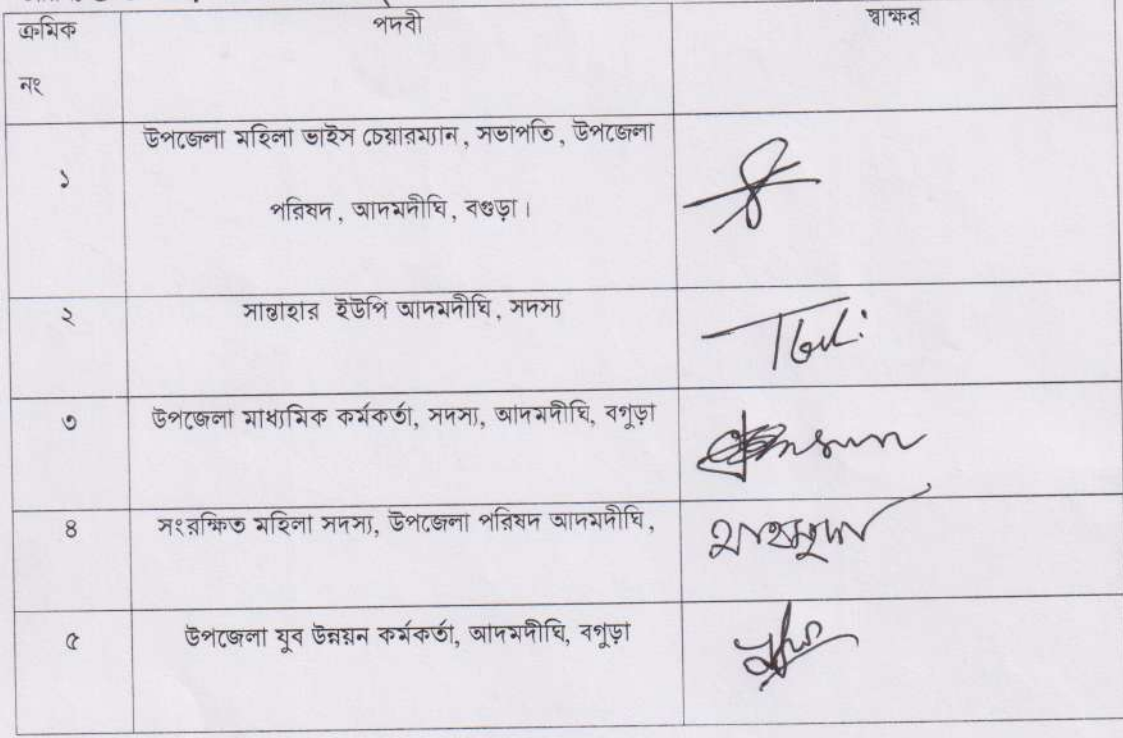 ক্রমিক নং পদবী স্বাক্ষর
১ উপজেলা মহিলা ভাইস চেয়ারম্যান, সভাপতি, উপজেলা
পরিষদ, আদমদীঘি, বগুড়া।
২ সান্তাহার ইউপি আদমদীঘি, সদস্য
৩ উপজেলা মাধ্যমিক কর্মকর্তা, সদস্য, আদমদীঘি, বগুড়া
৪ সংরক্ষিত মহিলা সদস্য, উপজেলা পরিষদ আদমদীঘি, মাহমুদা
৫ উপজেলা যুব উন্নয়ন কর্মকর্তা, আদমদীঘি, বগুড়া